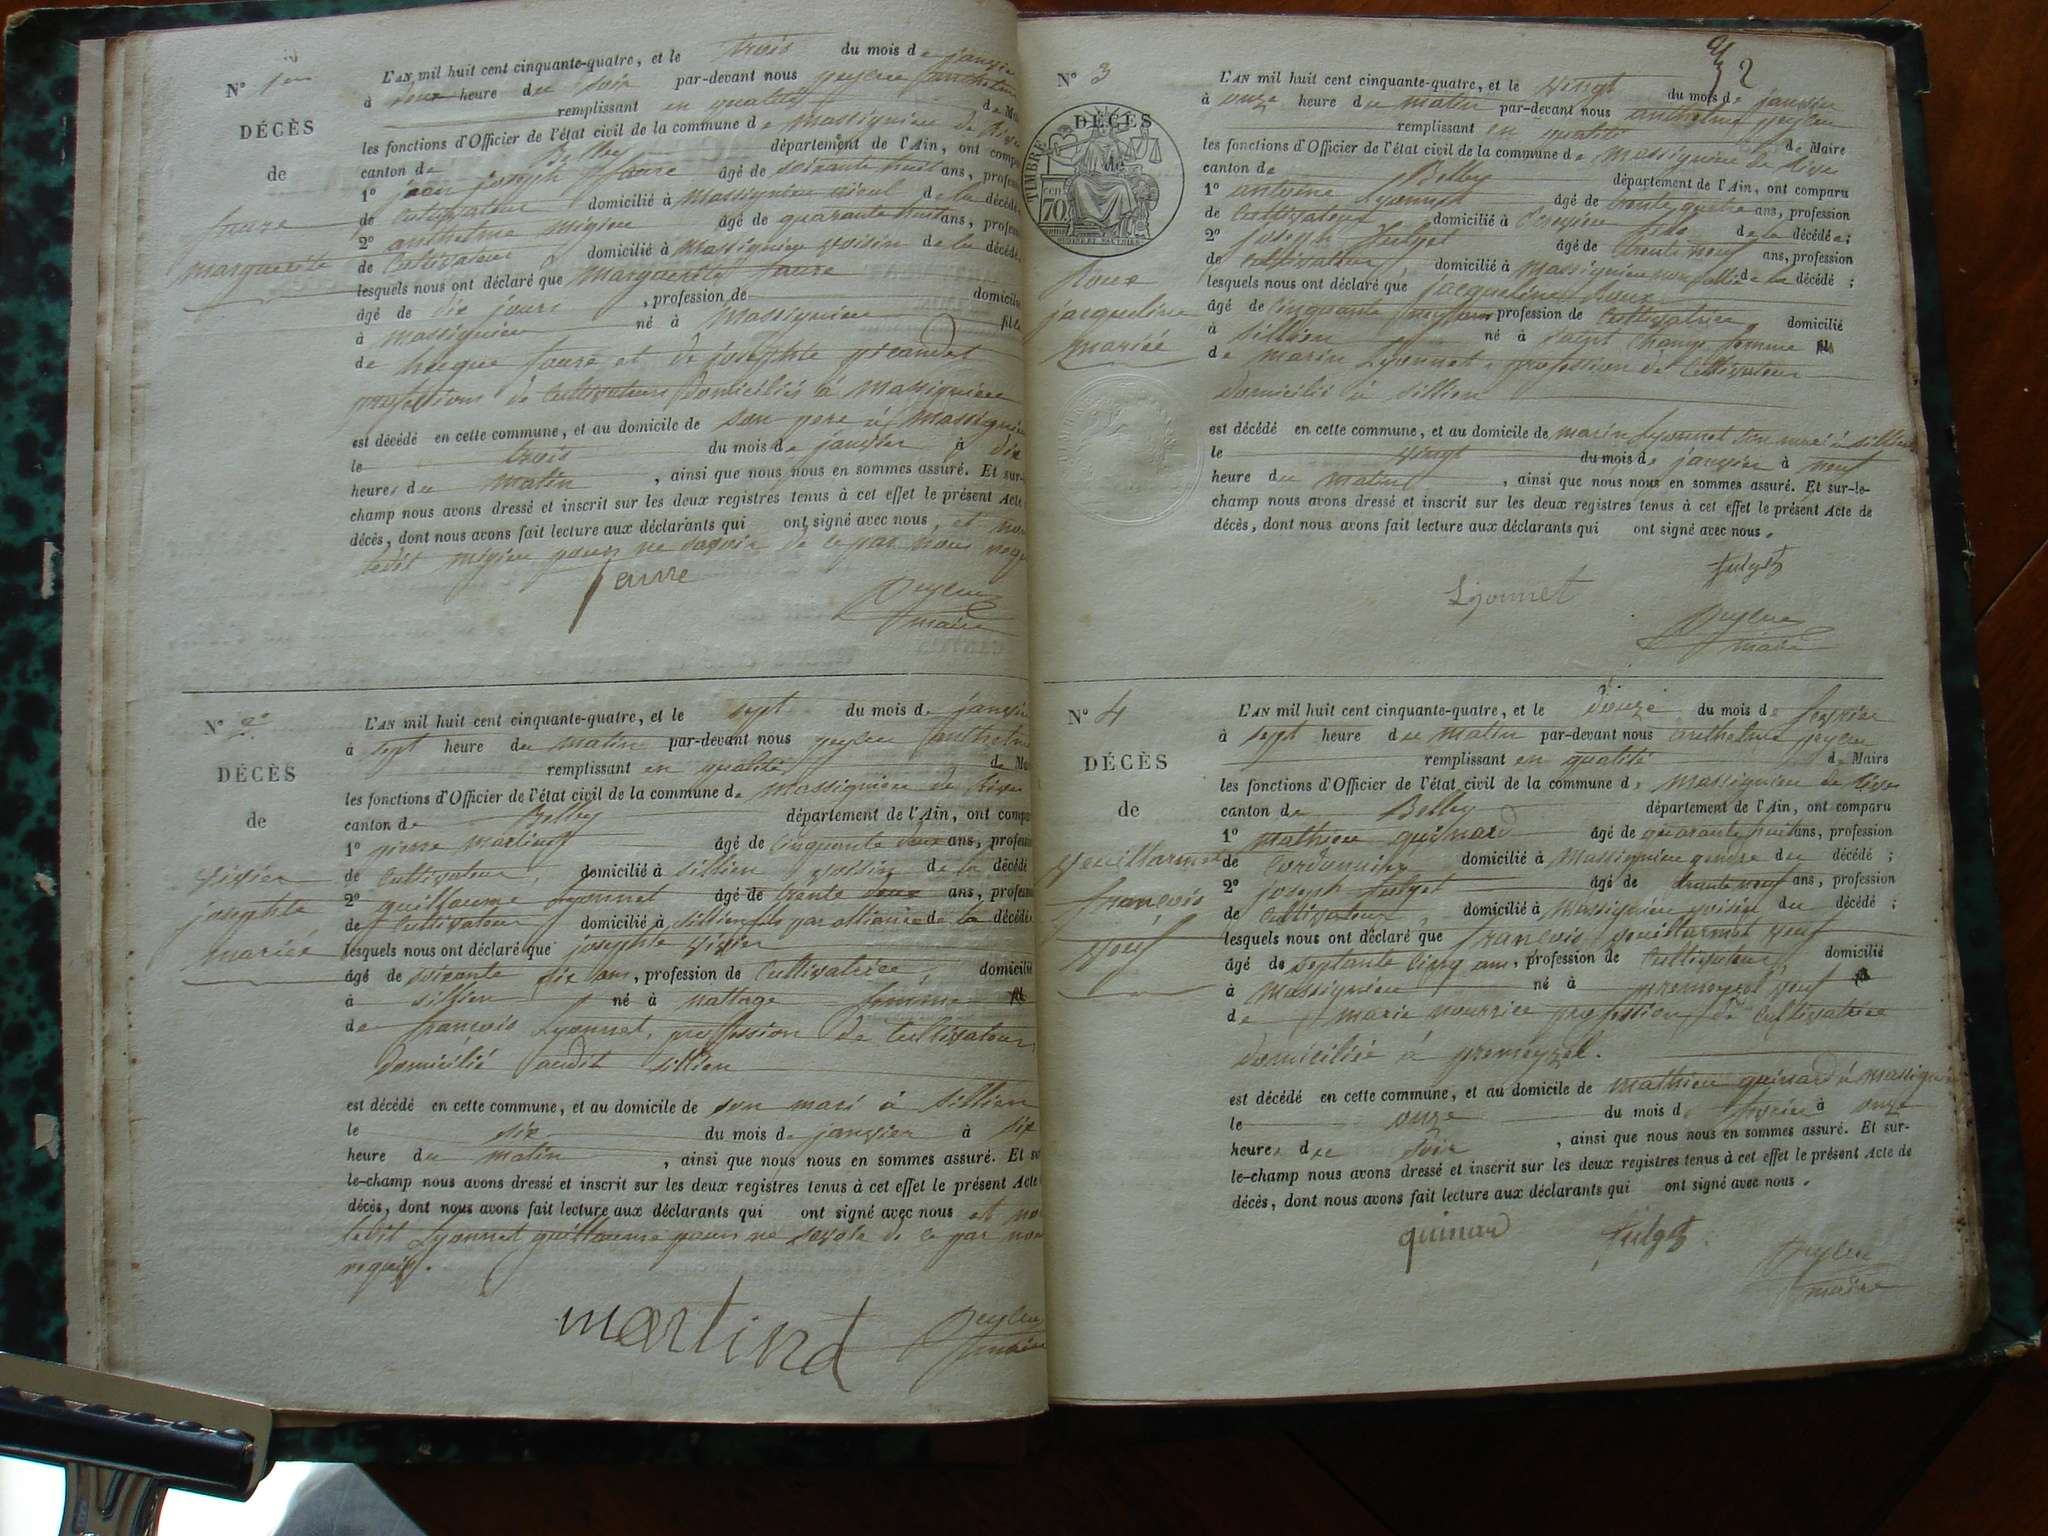 N° 1er
DÉCÈS
de
faure
marguerite
L'AN mil huit cent cinquante-quatre, et le trois du mois de janvier
à heure du soir par-devant nous peyleu anthelme
remplissant en qualité de Mai
les fonctions d'Officier de l'état civil de la commune de massignieu de Rives
canton de Belley département de l'Ain, ont compa
1° jean joseph faure âgé de soixante huit ans, profess
de Cultivateur domicilié à Massignieu aieul de la décédé
2° anthelme migieu âgé de quarante huit ans, profess
de Cultivateur domicilié à Massignieu voisin de la décédé
lesquels nous ont déclaré que Marguerite faure
âgé de dix jours , profession de domicilié
à massignieu né à Massignieu fille
de faure et de josephte picandet
professions de Cultivateurs domiciliés à Massignieu
est décédé en cette commune, et au domicile de son pere à Massignieu
le trois du mois de janvier à dix
heures du matin , ainsi que nous nous en sommes assuré. Et sur-
champ nous avons dressé et inscrit sur les deux registres tenus à cet effet le présent Acte
décès, dont nous avons fait lecture aux déclarants qui ont signé avec nous, et non
ledit migieu pour ne savoir de ce par nous requi
faure
Peyleu
maire
N° 2
DÉCÈS
de
josephte
mariée
L'AN mil huit cent cinquante-quatre, et le sept du mois de janvier
à sept heure du matin par-devant nous peyleu anthelme
remplissant en qualité de Mai
les fonctions d'Officier de l'état civil de la commune de massignieu de Rives
canton de Belley département de l'Ain, ont compa
1° pierre martinod âgé de cinquante deux ans, profession
de Cultivateur, domicilié à sillien voisin de la décédé
2° guillaume Lyonnet âgé de trente deux ans, profession
de Cultivateur domicilié à sillien fils par alliance de la décédé
lesquels nous ont déclaré que josephte
âgé de soixante six ans, profession de Cultivatrice, domicilié
à sillien né à nattage femme
de françois Lyonnet, profession de Cultivateur,
domicilié audit sillien
est décédé en cette commune, et au domicile de son mari à sillien
le six du mois de janvier à six
heure du matin , ainsi que nous nous en sommes assuré. Et su
le-champ nous avons dressé et inscrit sur les deux registres tenus à cet effet le présent Acte
décès, dont nous avons fait lecture aux déclarants qui ont signé avec nous et no
ledit Lyonnet guillaume pour ne savoir de ce par nous
requis.
martinod
Peyleu
maire
2
N° 3
DÉCÈS
de
TIMBRE
cen
70
Roux
jacqueline
mariée
L'AN mil huit cent cinquante-quatre, et le vingt du mois de janvier
à onze heure du matin par-devant nous anthelme peyleu
remplissant en qualité de Maire
les fonctions d'Officier de l'état civil de la commune de Massignieu de Rives
canton de Belley département de l'Ain, ont comparu
1° antoine Lyonnet âgé de trente quatre ans, profession
de Cultivateur domicilié à fils de la décédée;
2° joseph fulget âgé de trente neuf ans, profession
de Cultivateur, domicilié à Massignieu non allié de la décédé;
lesquels nous ont déclaré que jacqueline Roux
âgé de cinquante neuf ans profession de Cultivatrice, domicilié
à sillien né à Saint Champ femme
de marin Lyonnet, profession de Cultivateur
domicilié à sillien
est décédé en cette commune, et au domicile de marin Lyonnet son mari à sillien
le vingt du mois de janvier à neuf
heure du matin , ainsi que nous nous en sommes assuré. Et sur-le-
champ nous avons dressé et inscrit sur les deux registres tenus à cet effet le présent Acte de
décès, dont nous avons fait lecture aux déclarants qui ont signé avec nous.
fulget
Lyonnet
Peyleu
maire
N° 4
DÉCÈS
de
françois
veuf
L'AN mil huit cent cinquante-quatre, et le douze du mois de fevrier
à sept heure du matin par-devant nous anthelme peyleu
remplissant en qualité de Maire
les fonctions d'Officier de l'état civil de la commune de massignieu de Rives
canton de Belley département de l'Ain, ont comparu
1° mathieu quinard âgé de quarante huit ans, profession
de Cordonnier domicilié à Massignieu gendre du décédé;
2° joseph fulget âgé de trente neuf ans, profession
de Cultivateur, domicilié à Massignieu voisin du décédé;
lesquels nous ont déclaré que françois veuf
âgé de septante cinq ans, profession de Cultivateur, domicilié
à Massignieu né à premeyzel veuf
de marie nourrice profession de Cultivatrice
domiciliée à premeyzel.
est décédé en cette commune, et au domicile de mathieu quinard à Massignieu
le onze du mois de fevrier à onze
heures du soir , ainsi que nous nous en sommes assuré. Et sur-
le-champ nous avons dressé et inscrit sur les deux registres tenus à cet effet le présent Acte de
décès, dont nous avons fait lecture aux déclarants qui ont signé avec nous.
quinard
fulget
Peyleu
maire